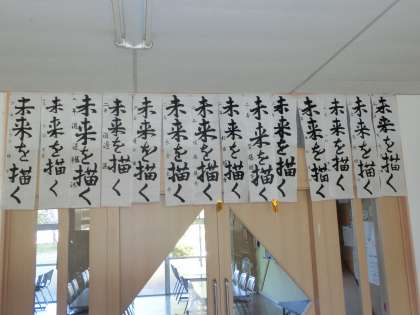 未来を描く
未来を描く
未来を描く
未来を描く
未来を描く
未来を描く
未来を描く
未来を描く
未来を描く
未来を描く
未来を描く
未来を描く
未来を描く
未来を描く